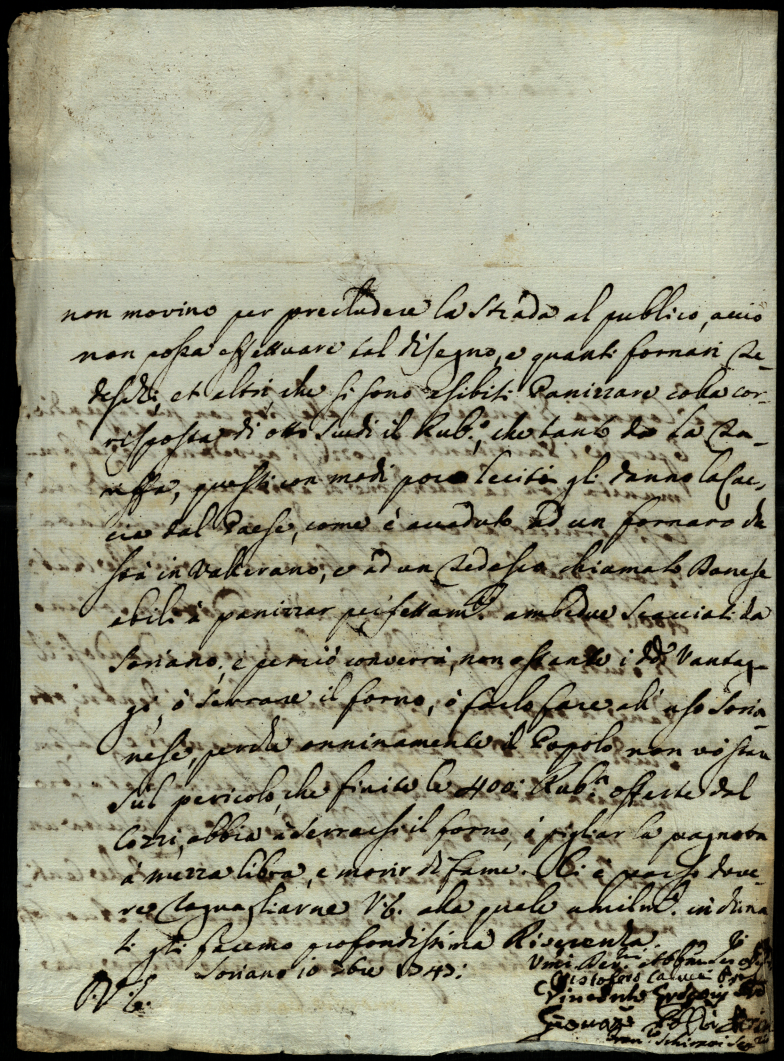 non movino per precludere la Strada al publico, acciò
non possa effettuare tal disegno, e quanti fornari Te-
deschi, et altri che si sono esibiti Panizzare colla cor-
risposta di otto Scudi il Rub.°, che tanto dà la Ta-
riffa, questi con modi poco leciti gli danno la Cac-
cia dal Paese, come è accaduto ad un fornaro che
stà in Vallerano, e ad un Tedesco chiamato
abili à panizzar perfettam.e ambedue Scacciati da
Soriano; e perciò converrà, non ostante i dd. Vantag-
gi, ò Serrare il forno, ò farlo fare all' uso Soria-
nese, perche onninamente il Popolo non vò stare
sul pericolo, che finite le 400: Rub.a offerte dal
Cozzi, abbia à Serrarsi il forno, è pigliar la pagnotta
à mezza libra, e morir di fame. Ci è parso dove-
re Raguagliarne V.E. alla quale umilm.e inchina
ti gli facemo profondissima Riverenza.
Soriano 10 Xbre 1743:
D. V. E.
Umi. Dev.mi Obbmi Ser.
Cristoforo
Vincenzo
Giovan